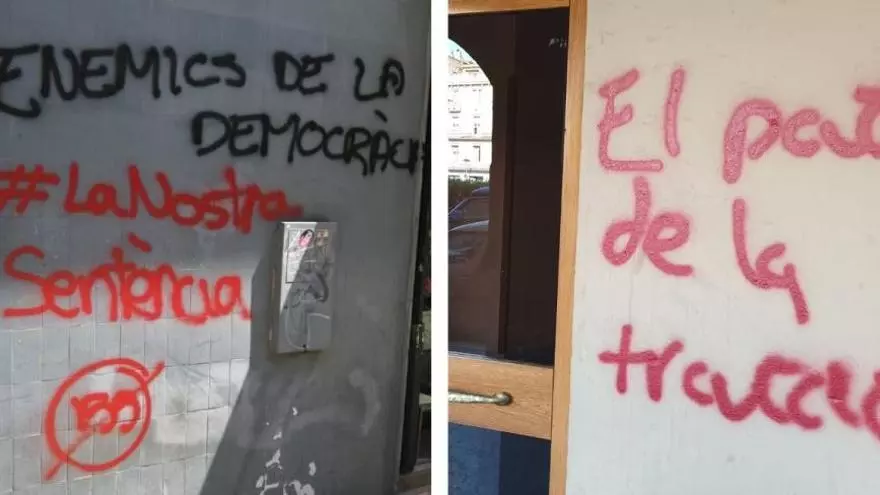 ENEMICS DE LA
DEMOCRÀCIA
#LaNostra
Sentència
155
El pa
de la
tracció